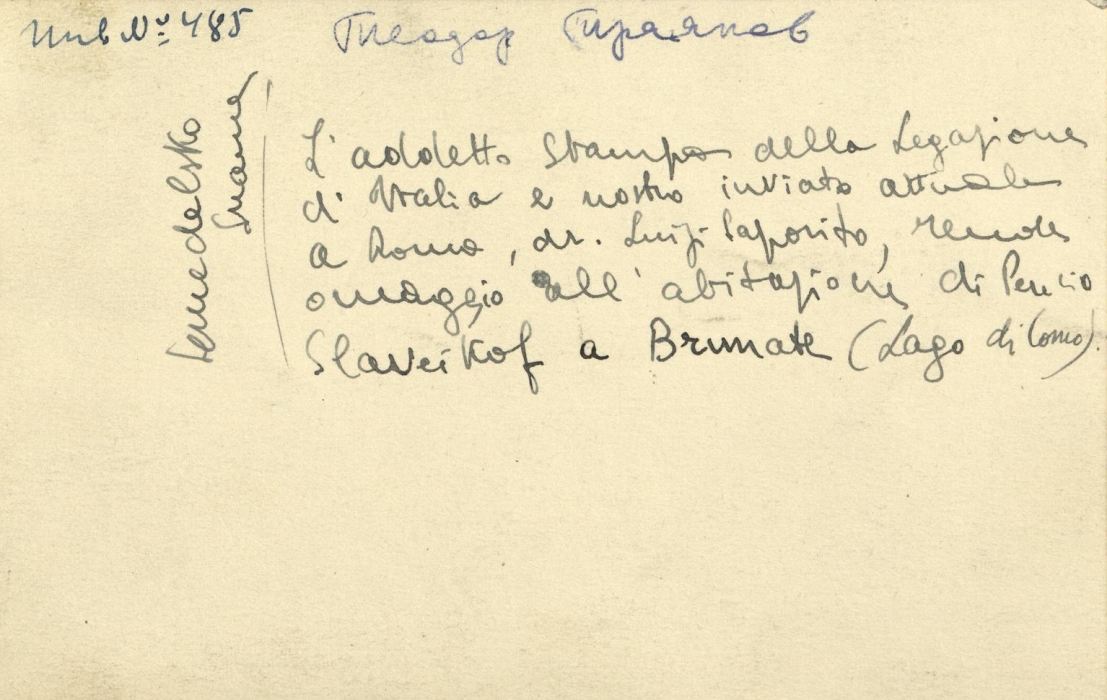 Инв № 485
Теодор Траянов
Nenedelsko
Snane
L'addetto Stampa della Legazione
d'Italia e nostro inviato attuale
a Roma, dr. Luigi Saporito, rende
omaggio all'abitazione di Pencio
Slaveikof a Brunate (Lago di Como).